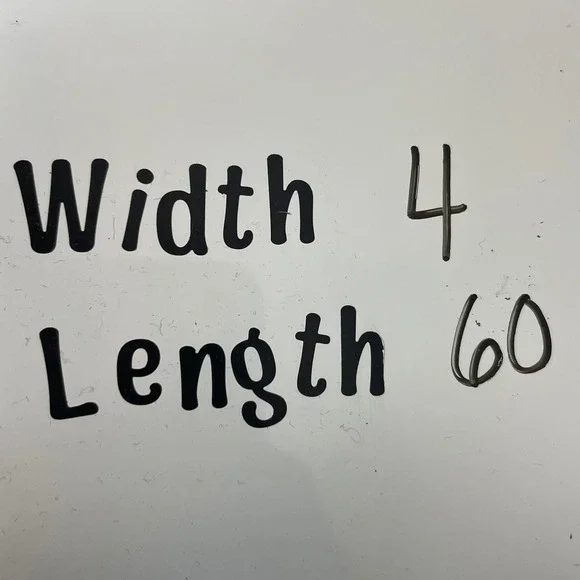 Width 4
Length 60